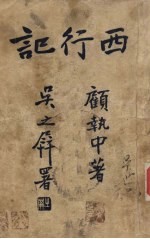 西行記
顧執中著
吴之屏署